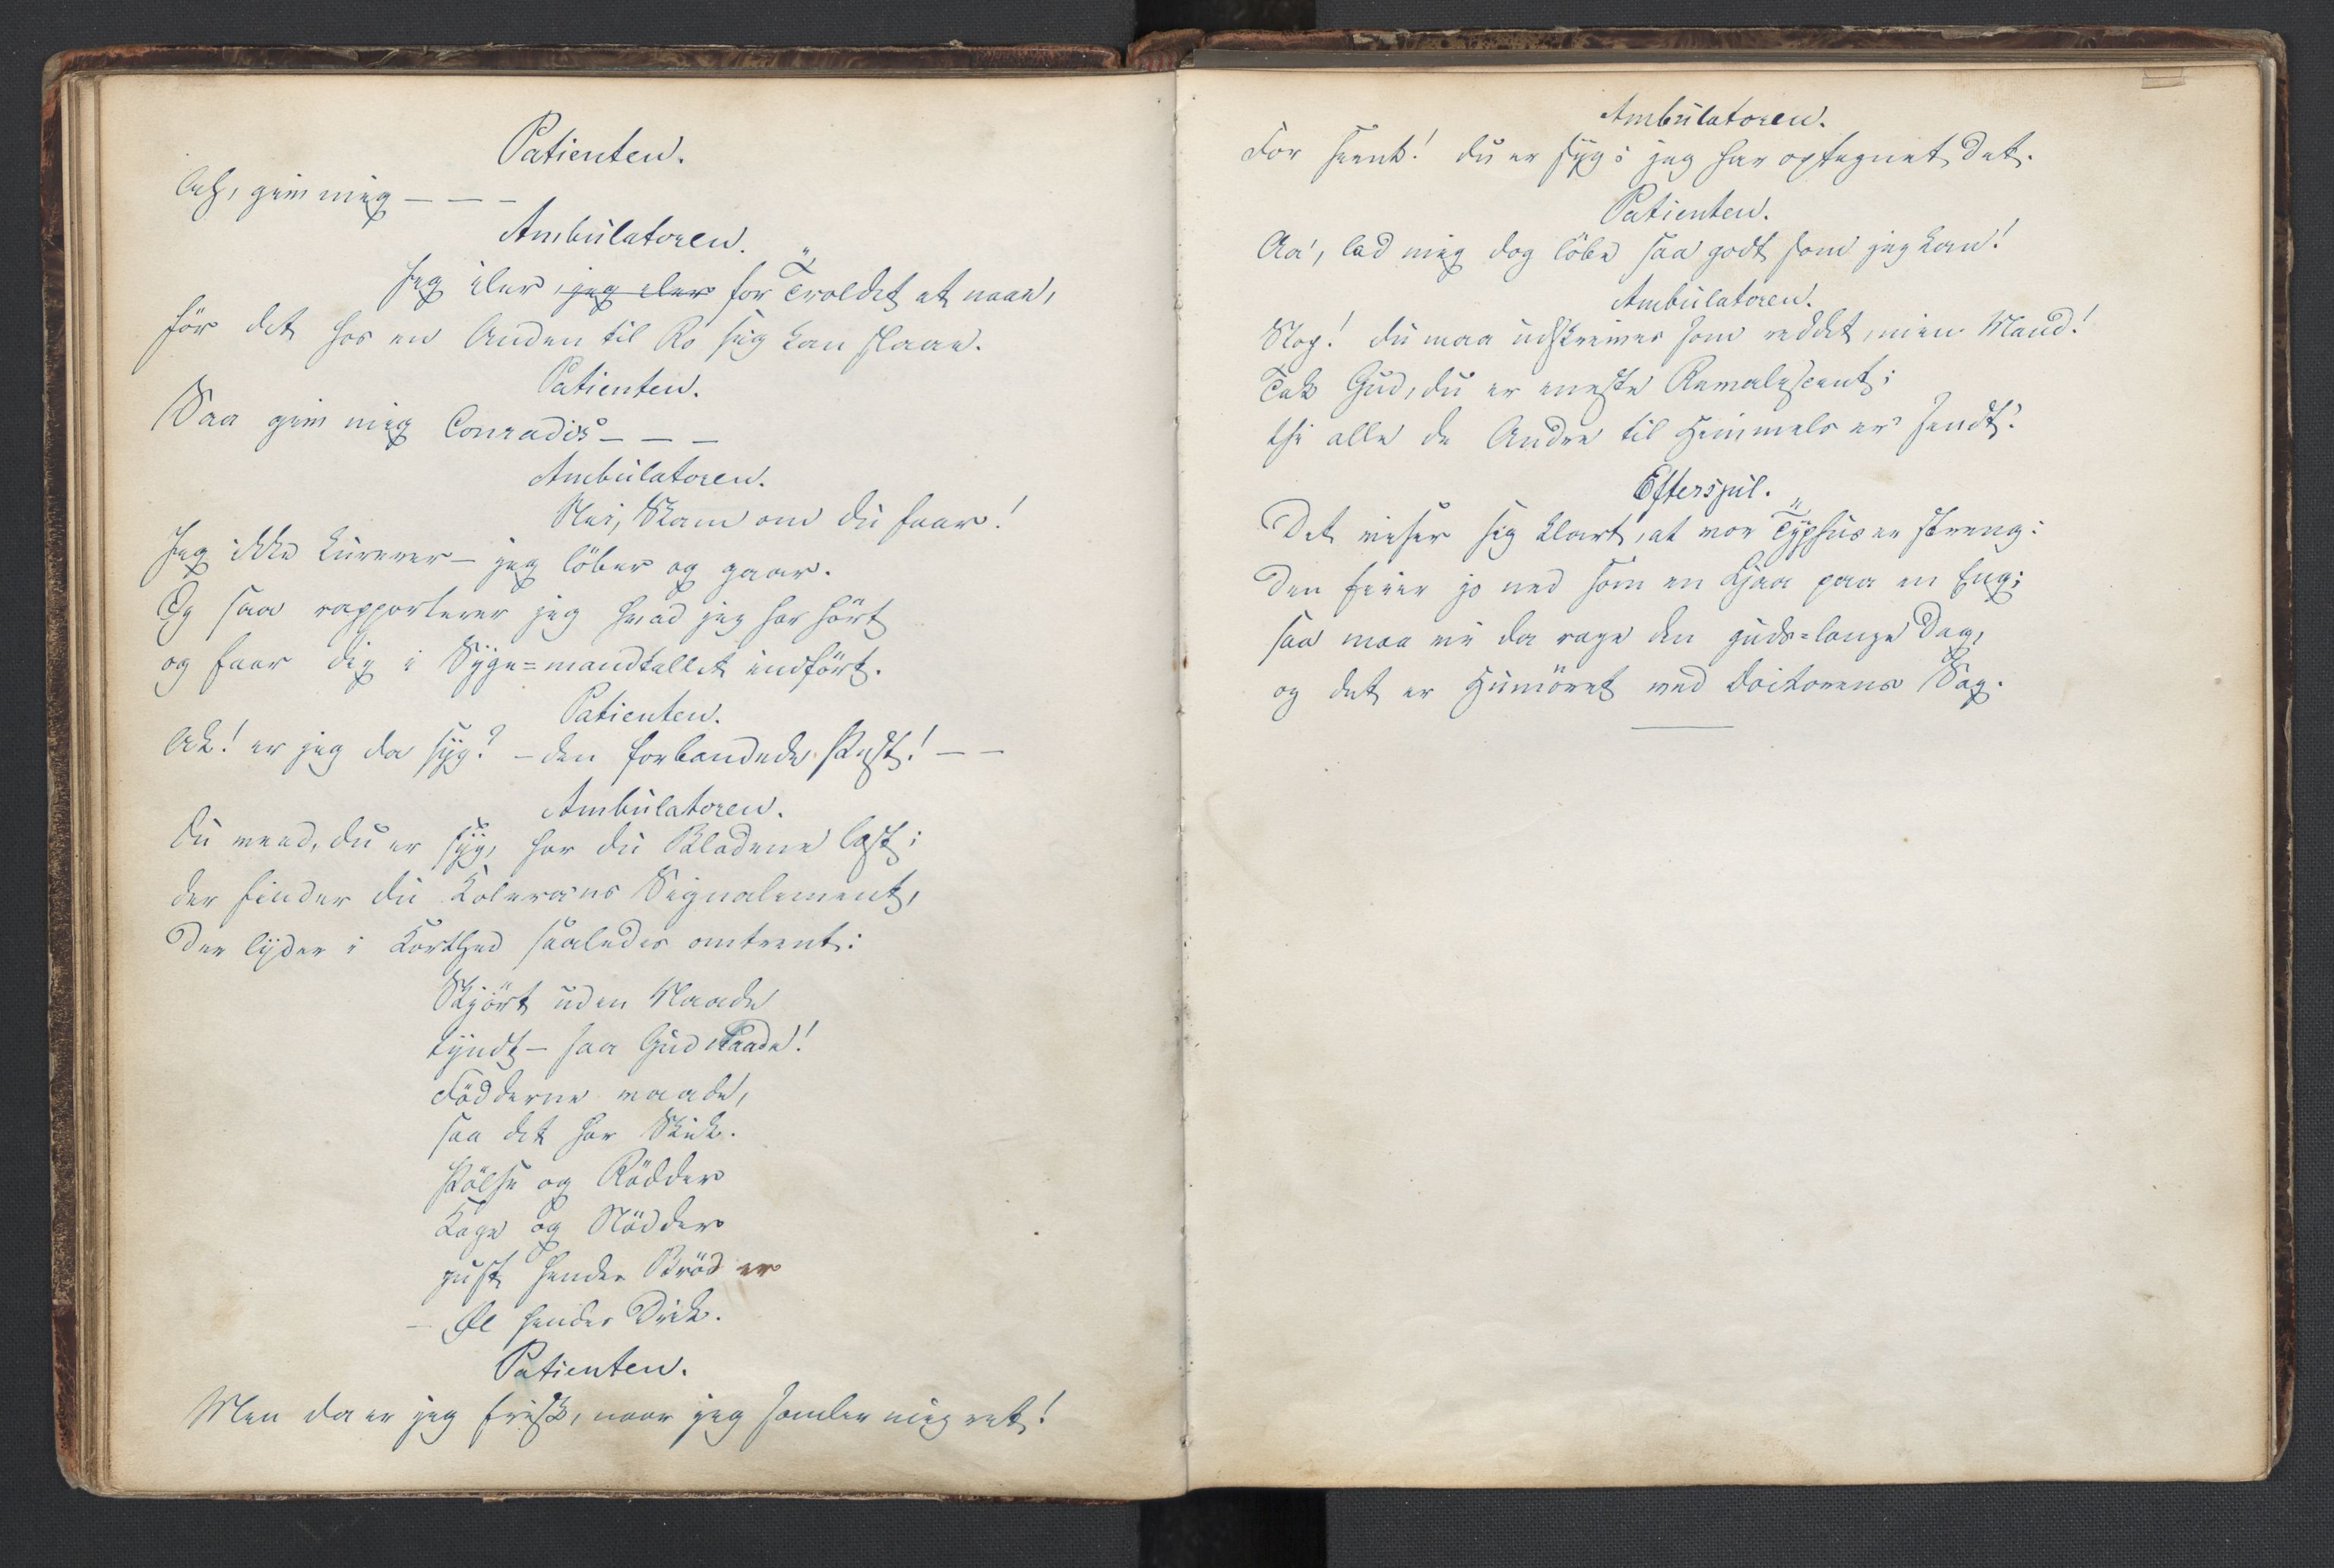 Patienten.
Ach, giv mig – – –
Ambulatoren.
Jeg iler, jeg iler for Troldet at naae,
før det hos en Anden til Ro sig kan slaae.
Patienten.
Saa giv mig Conradis – – –
Ambulatoren.
Nei, Skam om du faar!
Jeg ikke kurerer – jeg løber og gaar.
Og saa rapporterer jeg hvad jeg har hørt
og faar dig i Syge=mandtallet indført.
Patienten.
Ak! er jeg da syg? – den forbandede Pest! – –
Ambulatoren.
Du veed, du er syg, har du Bladene læst;
der finder du Kolera'ns Signalement,
der lyder i Korthed saaledes omtrent:
Skjørt uden Naade
tyndt – saa Gud raade!
Fødderne vaade,
saa det har Skik.
Pølse og Rødder
Kage og Nødder
just hendes Brød er
– Øl hendes Drik.
Patienten.
Men da er jeg frisk, naar jeg samler mig ret!
Ambulatoren.
For seent! du er syg: jeg har optegnet det.
Patienten.
Aa, lad mig dog løbe saa godt som jeg kan!
Ambulatoren.
Stop! du maa udskrives som reddet, min Mand!
Tak Gud, du er eneste Rekonvalescent;
thi alle de Andre til Himmels er sendt!
Efterspil.
Det viser sig klart, at vor Typhus er streng:
den feier jo ned som en Ljaa paa en Eng;
saa maa vi da rage den guds=lange Dag,
og det er Humøret ved Doktorens Sag.